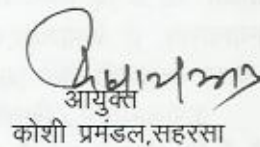 आयुक्त
कोशी प्रमंडल,सहरसा